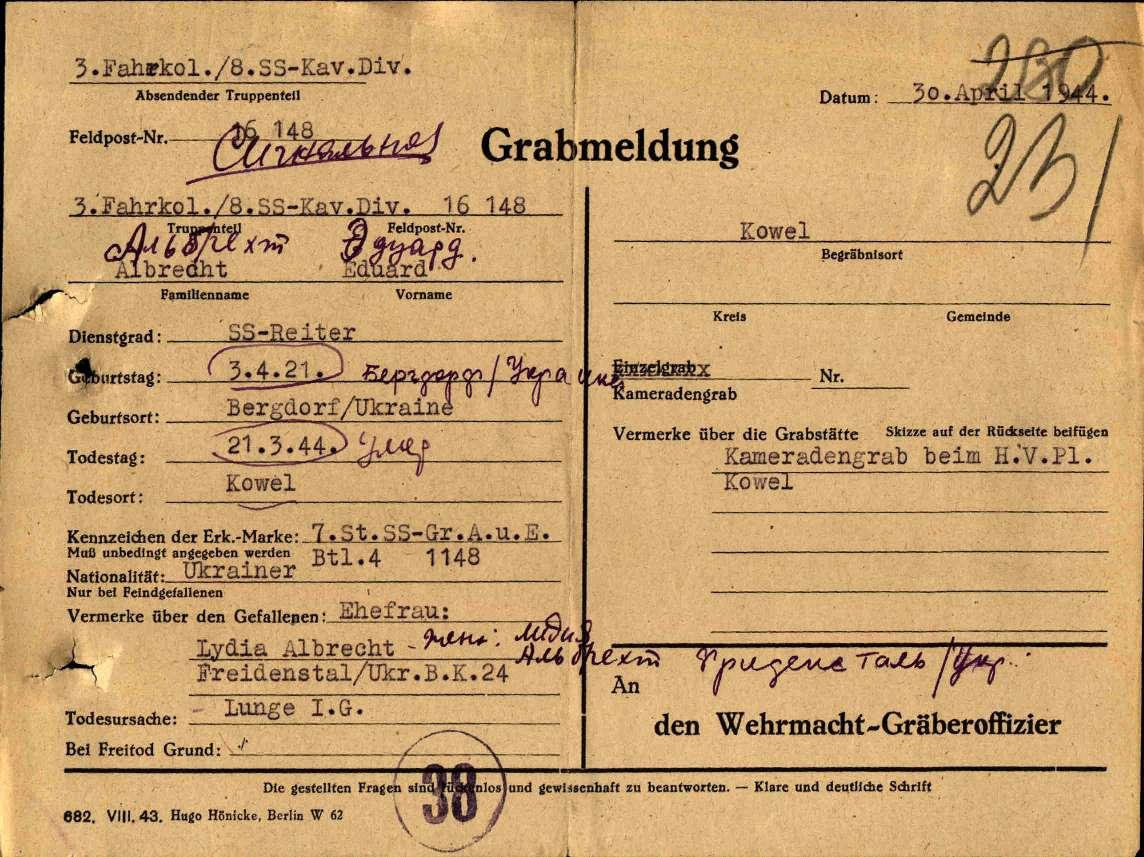 3.Fahrkol./8.SS-Kav.Div.
Absendender Truppenteil
Feldpost-Nr. 16 148
Datum: 30.April 1944.
230
231
Grabmeldung
3.Fahrkol./8.SS-Kav.Div. 16 148
Truppenteil Feldpost-Nr.
Альбрехт Эдуард.
Albrecht Eduard
Familienname Vorname
Dienstgrad: SS-Reiter
Geburtstag: 3.4.21.
Бергдорф/Украине
Geburtsort: Bergdorf/Ukraine
Todestag: 21.3.44. умер
Todesort: Kowel
Kennzeichen der Erk.-Marke: 7.St.SS-Gr.A.u.E.
Muß unbedingt angegeben werden Btl.4 1148
Nationalität: Ukrainer
Nur bei Feindgefallenen
Vermerke über den Gefallenen: Ehefrau:
Lydia Albrecht - жена: Лидия
Альбрехт Фриденсталь/Укр.
Freidenstal/Ukr.B.K.24
Todesursache: Lunge I.G.
Bei Freitod Grund:
Kowel
Begräbnisort
Kreis Gemeinde
Einzelgrab Nr.
Kameradengrab
Vermerke über die Grabstätte Skizze auf der Rückseite beifügen
Kameradengrab beim H.V.Pl.
Kowel
An
den Wehrmacht-Gräberoffizier
Die gestellten Fragen sind lückenlos und gewissenhaft zu beantworten. — Klare und deutliche Schrift
38
682. VIII. 43. Hugo Hönicke, Berlin W 62